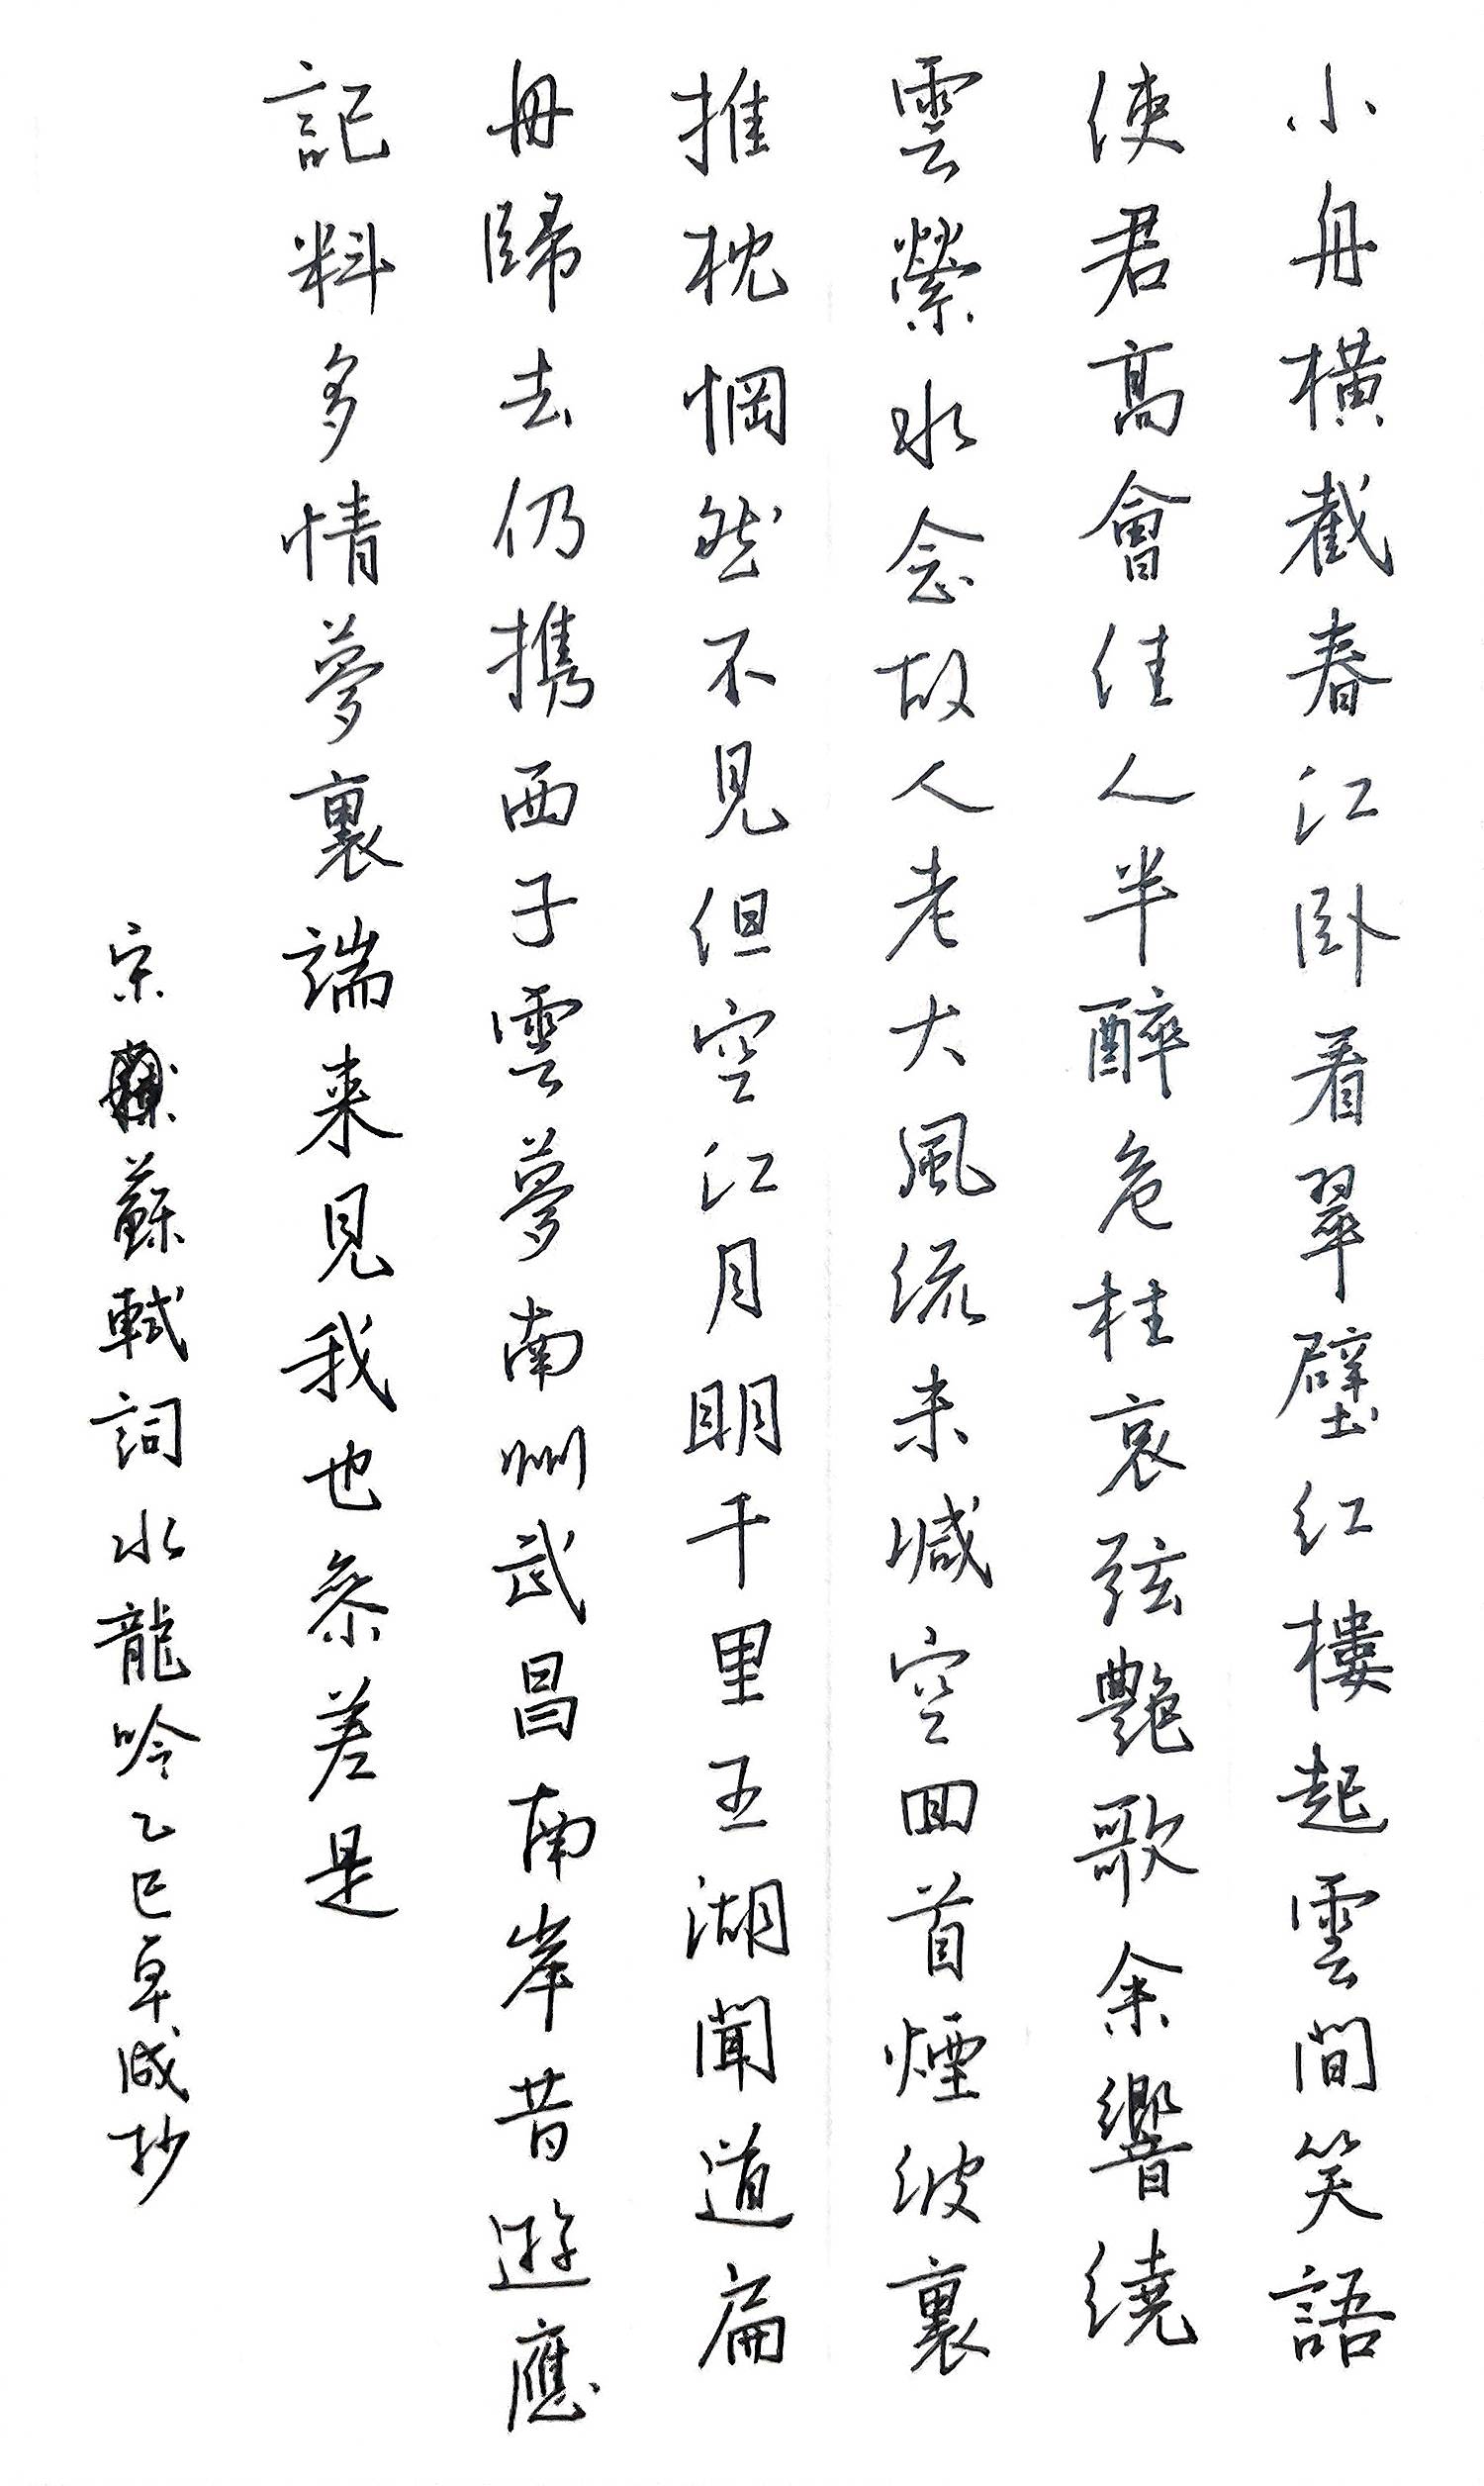 小舟橫截春江卧看翠壁红樓起雲間笑語
使君高會佳人半醉危柱哀弦艷歌余響繞
雲縈水念故人老大風流未減空回首煙波裏
推枕惘然不見但空江月明千里五湖聞道扁
舟歸去仍携西子雲夢南州武昌南岸昔遊應
記料多情夢裏端来見我也參差是
宋蘇軾詞水龍吟乙巳卓成抄